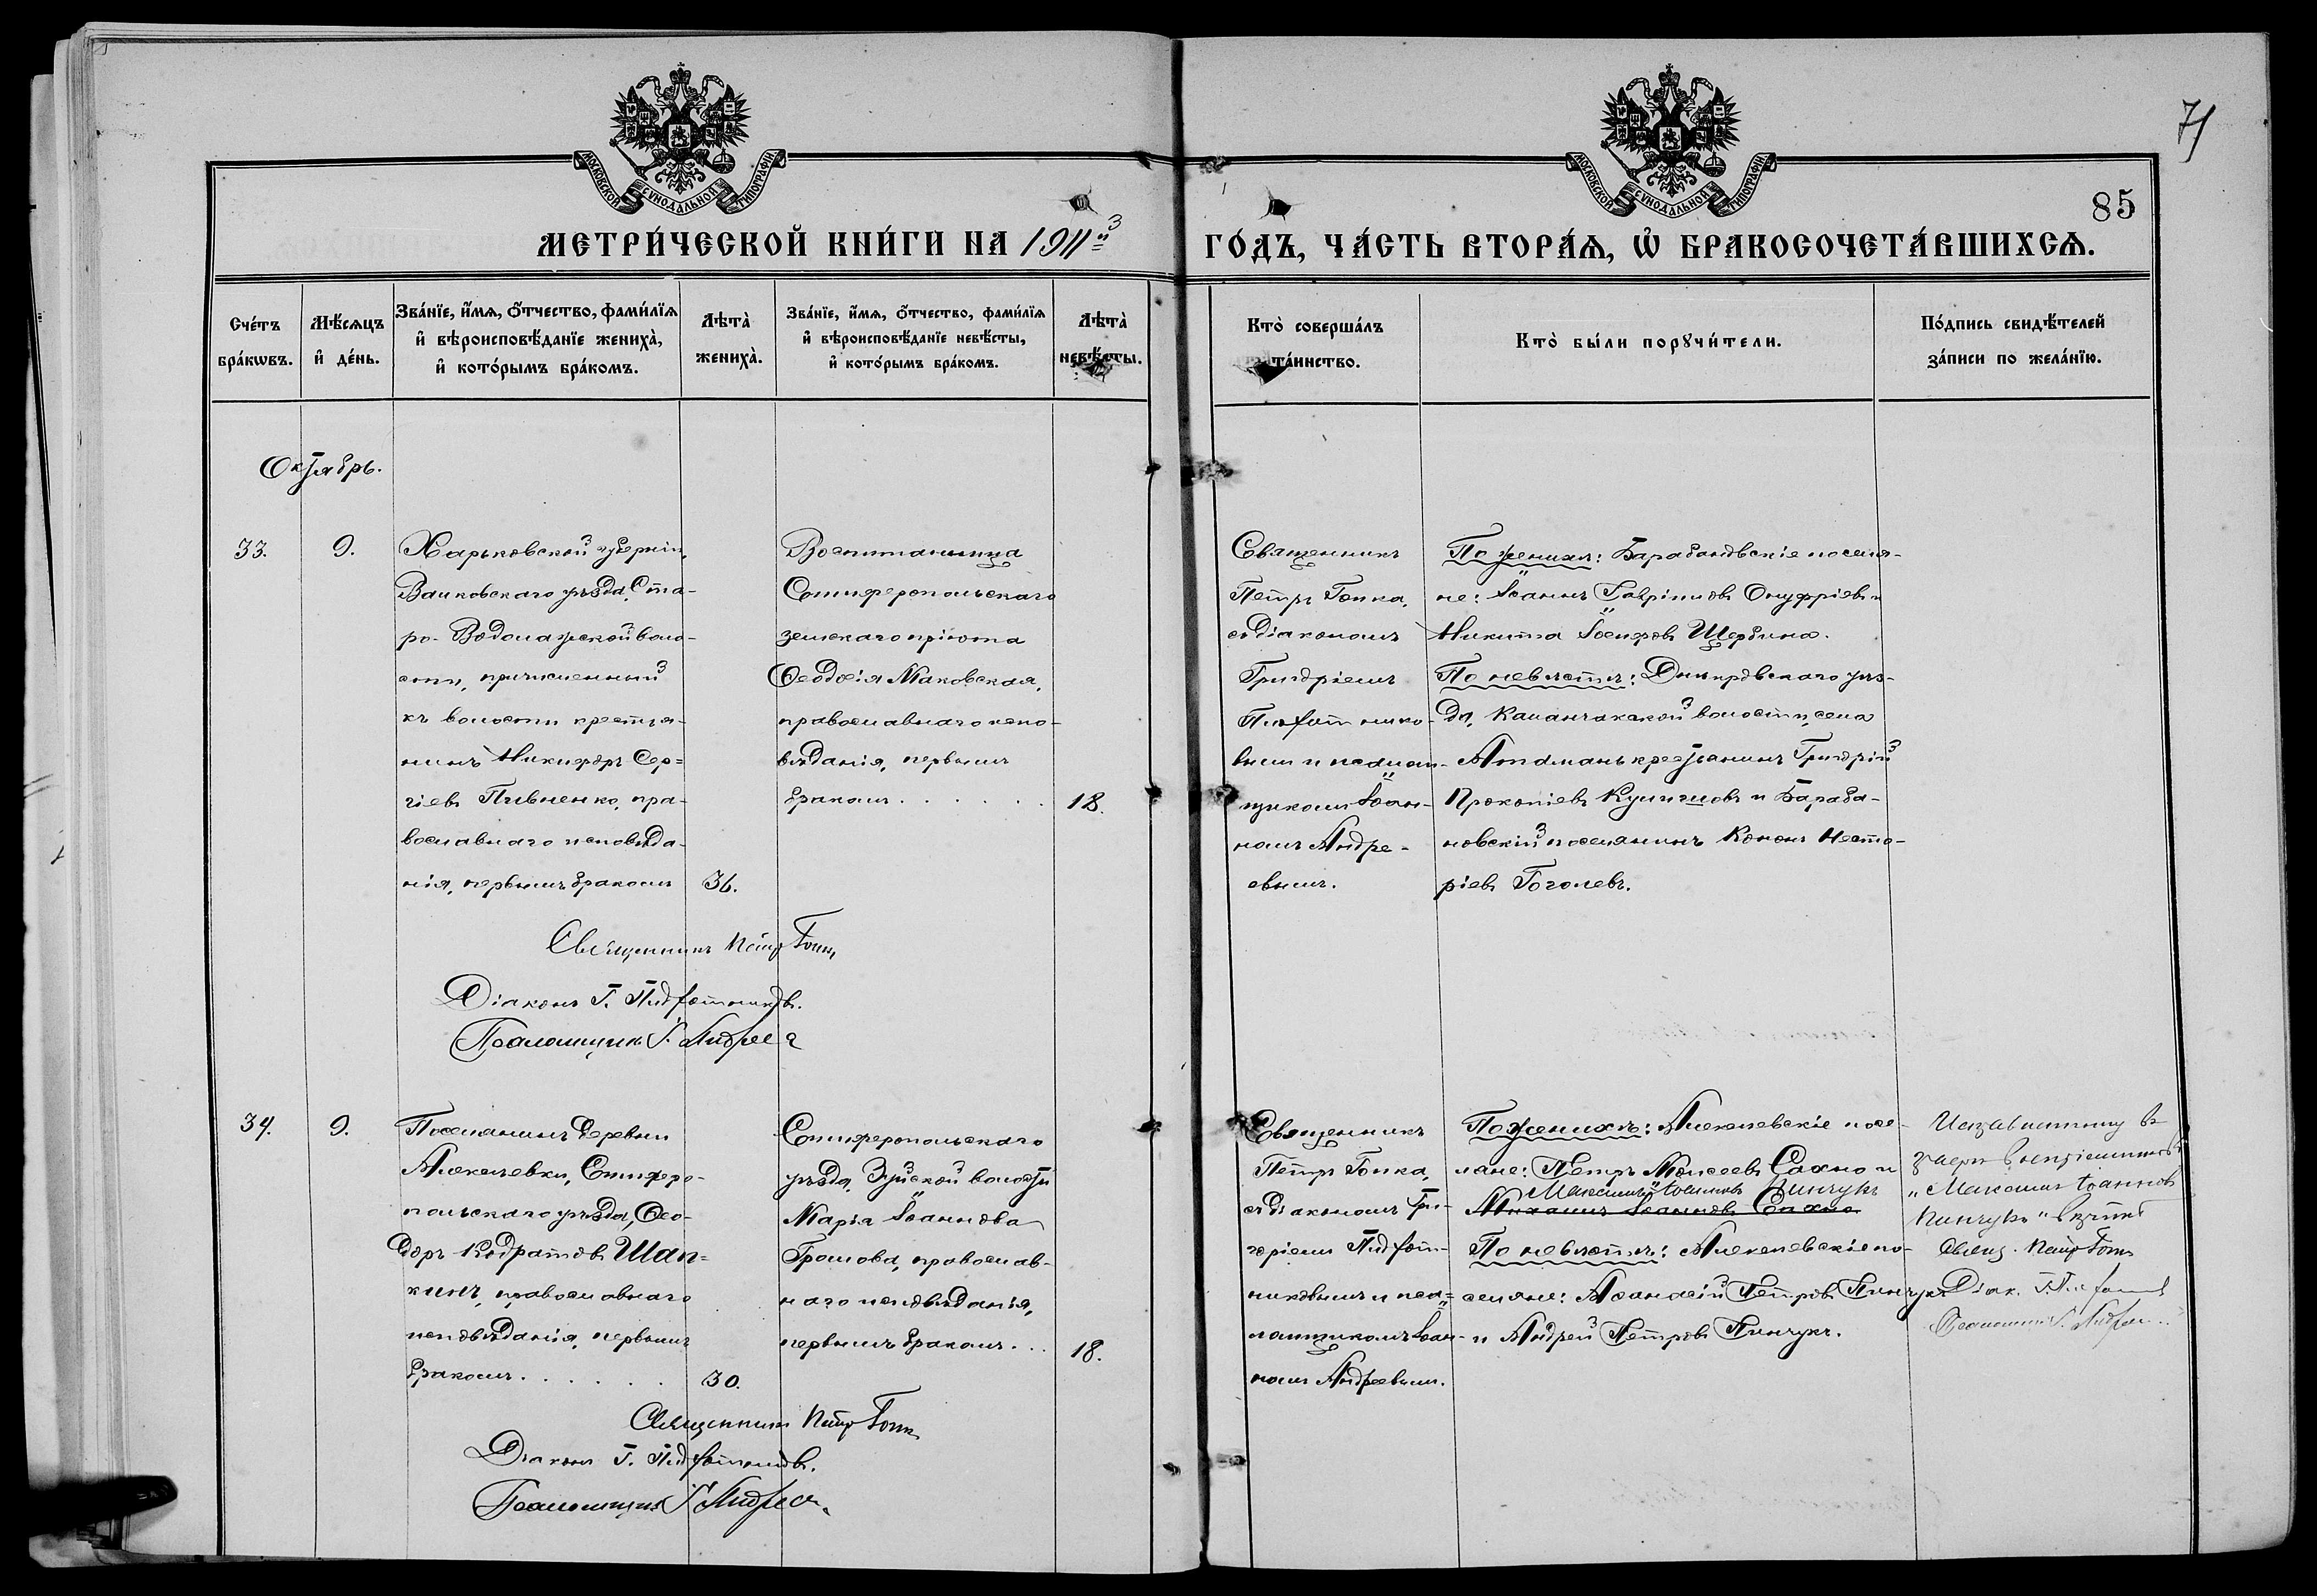 71
85
МОСКОВСКОЙ СѴНОДАЛЬНОЙ ТИПОГРАФІИ
МОСКОВСКОЙ СѴНОДАЛЬНОЙ ТИПОГРАФІИ
МЕТРИ́ЧЕСКОЙ КНИ́ГИ НА 1911й
ГО́ДЪ, ЧА́СТЬ ВТОРА́Ѧ, Ѡ҆ БРАКОСОЧЕТА́ВШИХСѦ.
Сче́тъ бра́кѡвъ.
Мѣ́сѧцъ и҆ де́нь.
Зва́нїе, и҆́мѧ, ѻ҆́тчество, фами́лїѧ
и҆ вѣроисповѣ́данїе женихà,
и҆ кото́рымъ бра́комъ.
Лѣтà женихà.
Зва́нїе, и҆́мѧ, ѻ҆́тчество, фами́лїѧ
и҆ вѣроисповѣ́данїе невѣ́сты,
и҆ кото́рымъ бра́комъ.
Лѣтà невѣ́сты.
Ктò соверша́лъ
та́инство.
Ктò бы́ли порꙋчи́тели.
По́дпись свидѣ́телей
за́писи по жела́нїю.
Октябрь.
33.
9.
Харьковской губерніи,
Валковскаго уѣзда, Ста-
ро-Водолажской воло-
сти, причисленный
къ волости крестья-
нинъ Никифоръ Сер-
гіевъ Пивненко, пра-
вославнаго исповѣда-
нія, первымъ бракомъ
36.
Воспитанница
Симферопольскаго
земскаго пріюта
Ѳеодосія Маковская,
православнаго испо-
вѣданія, первымъ
бракомъ . . . . . .
18.
Священникъ
Петръ Гопка,
съ діакономъ
Григоріемъ
Пихотнико-
вымъ и псалом-
щикомъ Іоан-
номъ Андре-
евымъ.
По женихѣ: Барабановскіе поселя-
не: Іоаннъ Гавріиловъ Онуфріевъ и
Никита Іосифовъ Щербина.
По невѣстѣ: Днѣпровскаго уѣз-
да, Каланчакской волости, села
Атамань крестьянинъ Григорій
Прокопіевъ Кулишовъ и Бараба-
новскій поселянинъ Кононъ Несто-
ріевъ Гоголевъ.
Священникъ Петръ Гопка
Діаконъ Г. Пихотниковъ.
Псаломщикъ І. Андреевъ
34.
9.
Поселянинъ деревни
Алексѣевки, Симферо-
польскаго уѣзда, Ѳео-
доръ Кодратовъ Шап-
кинъ, православнаго
исповѣданія, первымъ
бракомъ . . . . . .
30.
Симферопольскаго
уѣзда, Зуйской волости
Марія Іоаннова
Громова, православ-
наго исповѣданія,
первымъ бракомъ . . .
18.
Священникъ
Петръ Гопка,
съ діакономъ Гри-
горіемъ Пихот-
никовымъ и пса-
ломщикомъ Іоан-
номъ Андреевымъ.
По женихѣ: Алексѣевскіе посе-
ляне: Петръ Моисеевъ Сахно и
Максимъ Іоанновъ Пинчукъ
Михаилъ Іоанновъ Сахно
По невѣстѣ: Алексѣевскіе по-
селяне: Аѳанасій Петровъ Пинчукъ
и Андрей Петровъ Пинчукъ.
"Максимъ Іоанновъ
Пинчукъ"
Свящ. Петръ Гопка
Діак.
Псаломщикъ І. Андреевъ
Священникъ Петръ Гопка
Діаконъ Г. Пихотниковъ.
Псаломщикъ І. Андреевъ